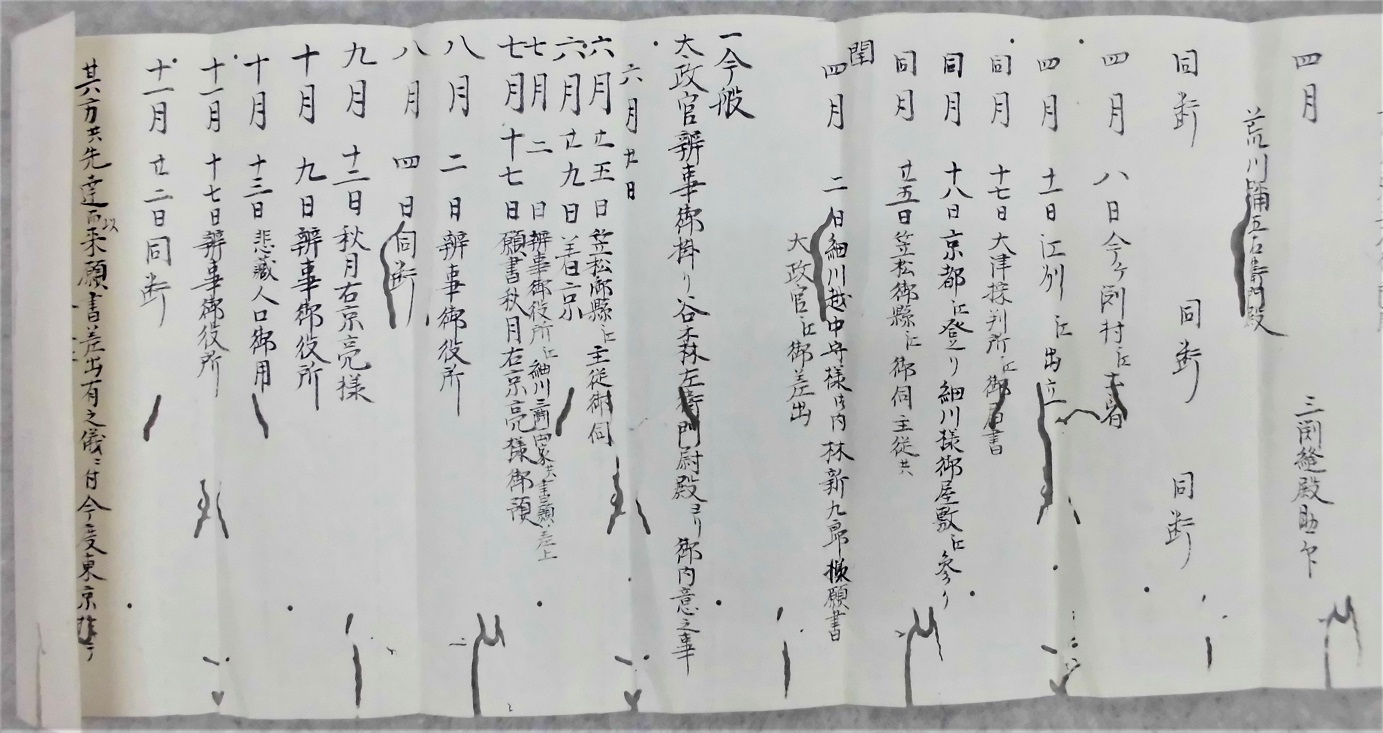 四月
三渕縫殿助
荒川 五右衛門殿
同断 同断 同断
四月 八日今ヶ渕村江
四月 十一日江州江出立
同月 十七日大津裁判所江御届書
同月 十八日京都江登り細川様御屋敷江参り
同月 廿五日笠松御縣江御伺主従共
閏四月 二日細川越中守様御内林新九郎様願書
大政官江御差出
一今般
太政官辨事御掛り谷森左衛門尉殿ヨリ御内意之事
六月廿日
六月廿五日笠松御縣江主従御伺
六月廿九日 京
七月 二日辨事御役所江細川三渕 共書願差上
七月十七日願書秋月右京亮様御預
八月 二日辨事御役所
八月 四日同断
九月 十二日秋月右京亮様
十月 九日辨事御役所
十月 十三日悲蔵人口御用
十一月 十七日辨事御役所
十一月 廿二日同断
其方共先達而以来願書差出有之儀ニ付今度東京